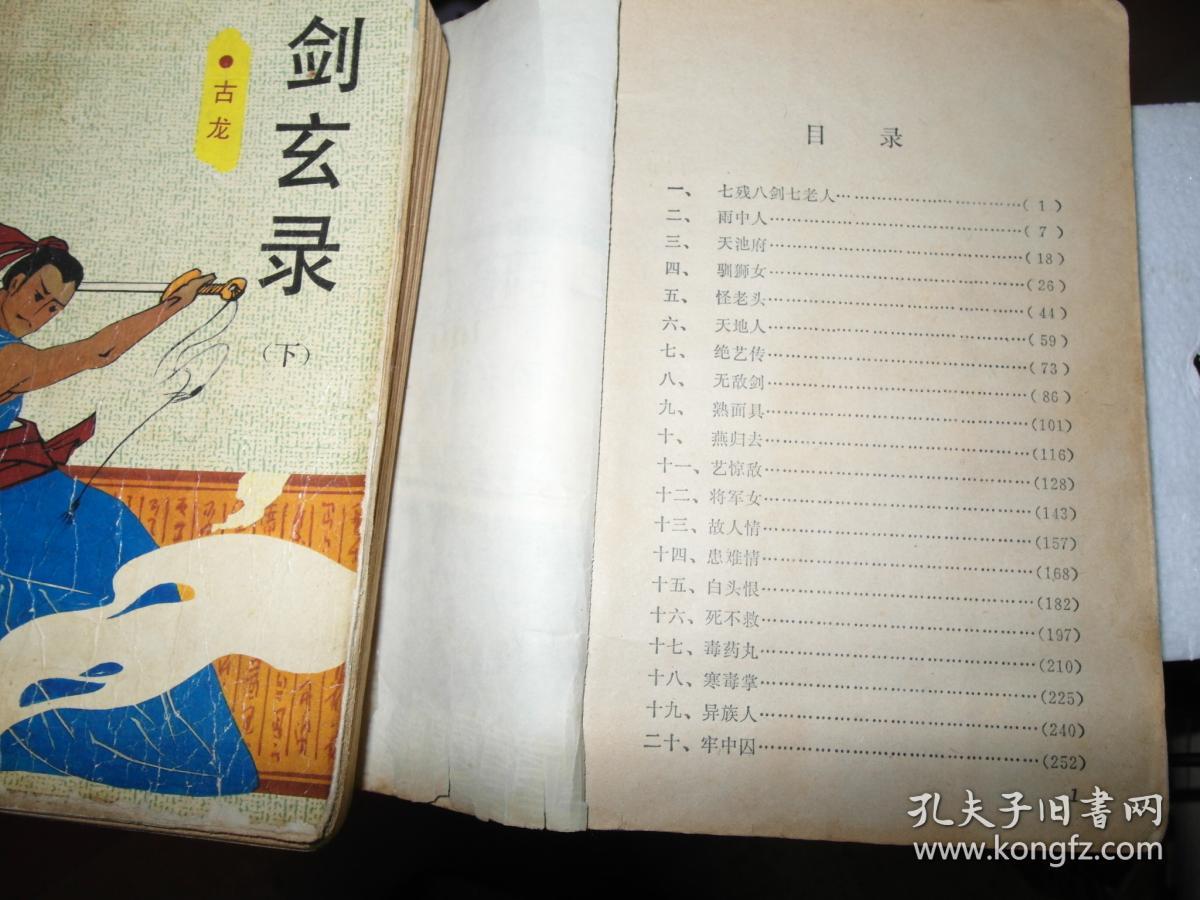 剑玄录
●古龙
（下）
目 录
一、 七残八剑七老人………………………( 1 )
二、 雨中人………………………( 7 )
三、 天池府………………………(18)
四、 驯狮女………………………(26)
五、 怪老头………………………(44)
六、 天地人………………………(59)
七、 绝艺传………………………(73)
八、 无敌剑………………………(86)
九、 熟面具………………………(101)
十、 燕归去………………………(116)
十一、艺惊敌………………………(128)
十二、将军女………………………(143)
十三、故人情………………………(157)
十四、患难情………………………(168)
十五、白头恨………………………(182)
十六、死不救………………………(197)
十七、毒药丸………………………(210)
十八、寒毒掌………………………(225)
十九、异族人………………………(240)
二十、牢中囚………………………(252)
1
孔夫子旧书网
www.kongfz.com